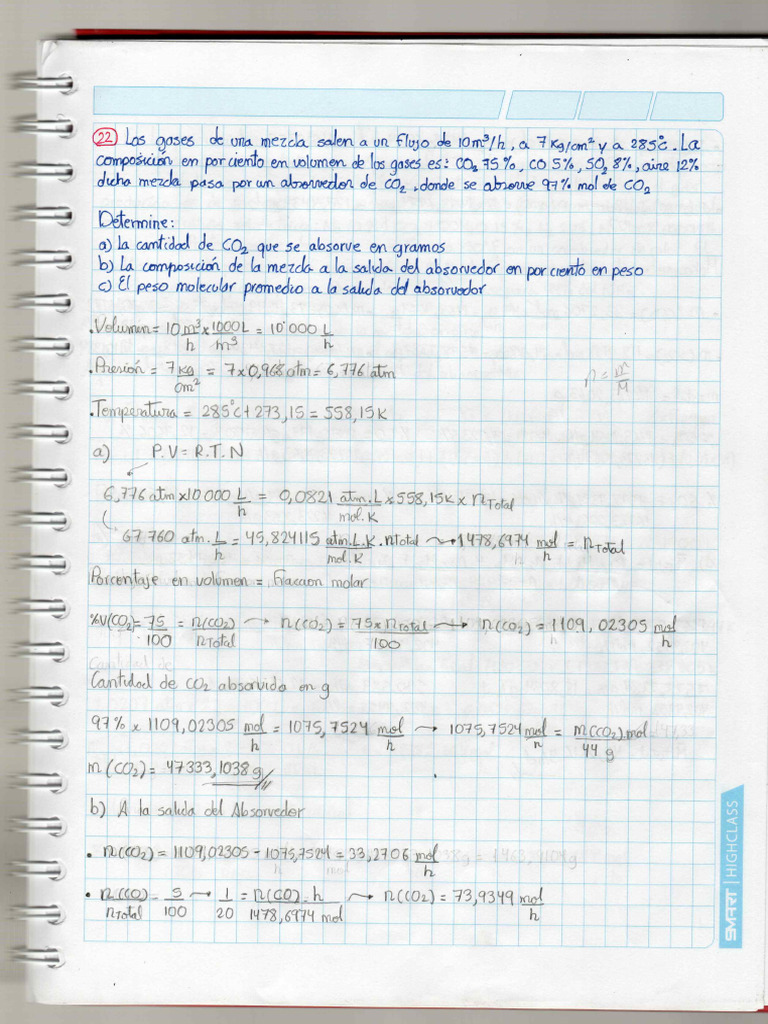 22 Los gases de una mezcla salen a un flujo de 10m³/h, a 7 Kg/cm² y a 285°c. La
composición en por ciento en volumen de los gases es: CO₂ 75%, CO 5%, SO₂ 8%, aire 12%
dicha mezcla pasa por un absorvedor de CO₂, donde se absorve 97% mol de CO₂
Determine:
a) La cantidad de CO₂ que se absorve en gramos
b) La composición de la mezcla a la salida del absorvedor en por ciento en peso
c) El peso molecular promedio a la salida del absorvedor
• Volumen = 10 m³/h x 1000L/m³ = 10'000 L/h
• Presión = 7 kg/cm² = 7x0,968 atm = 6,776 atm
n = m/M
• Temperatura = 285°c + 273,15 = 558,15K
a) P.V = R.T.N
6,776 atm x 10 000 L/h = 0,0821 atm.L/mol.K x 558,15K x nTotal
67 760 atm.L/h = 45,824115 atm.L.K/mol.K . nTotal → 1478,6974 mol/h = nTotal
Porcentaje en volumen = Fraccion molar
%V(CO₂) = 75/100 = n(CO₂)/nTotal → n(CO₂) = 75 x nTotal/100 → n(CO₂) = 1109,02305 mol/h
Cantidad de
Cantidad de CO₂ absorvido en g
97% x 1109,02305 mol/h = 1075,7524 mol/h → 1075,7524 mol/h = m(CO₂).mol/44 g
m(CO₂) = 47333,1038g
b) A la salida del Absorvedor
• n(CO₂) = 1109,02305 - 1075,7524 = 33,2706 mol/h
• n(CO)/nTotal = 5/100 → 1/20 = n(CO).h/1478,6974 mol → n(CO₂) = 73,9349 mol/h
SMART | HIGHCLASS